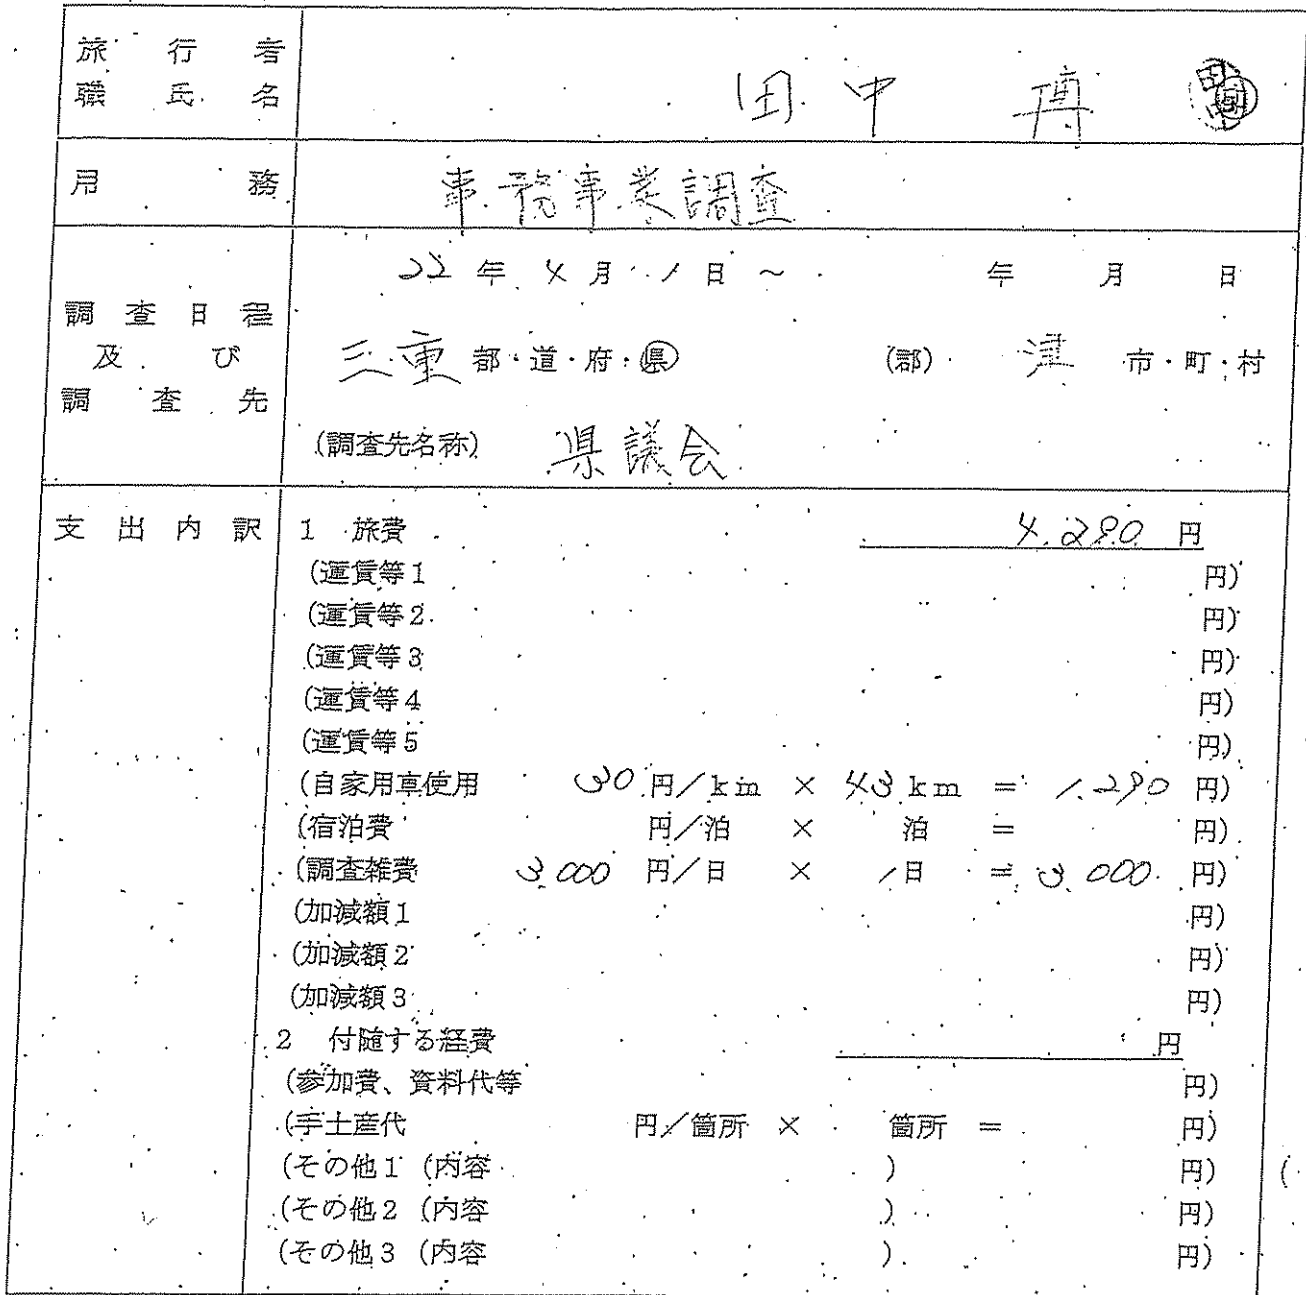 旅行者
職氏名 田中 博 田中 ㊞
用務 事務事業調査
22年4月1日～ 年 月 日
調査日程
及び
調査先
三重 都・道・府・県 (郡) 津 市・町・村
(調査先名称) 県議会
支出内訳 1 旅費 4,290 円
(運賃等1 円)
(運賃等2 円)
(運賃等3 円)
(運賃等4 円)
(運賃等5 円)
(自家用車使用 30円/km × 43km = 1,290 円)
(宿泊費 円/泊 × 泊 = 円)
(調査雑費 3,000 円/日 × 1日 = 3,000 円)
(加減額1 円)
(加減額2 円)
(加減額3 円)
2 付随する経費 円
(参加費、資料代等 円)
(手土産代 円/箇所 × 箇所 = 円)
(その他1 (内容 ) 円)
(その他2 (内容 ) 円)
(その他3 (内容 ) 円)